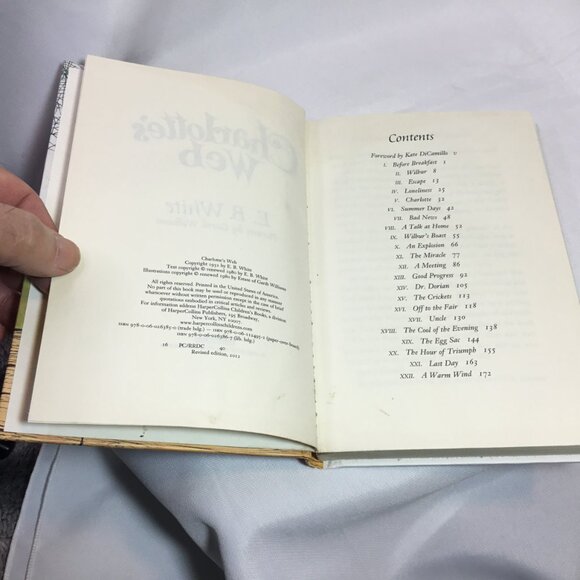 Charlotte's Web
Copyright 1952 by E. B. White
Text copyright © renewed 1980 by E. B. White
Illustrations copyright © renewed 1980 by Estate of Garth Williams
All rights reserved. Printed in the United States of America.
No part of this book may be used or reproduced in any manner
whatsoever without written permission except in the case of brief
quotations embodied in critical articles and reviews.
For information address HarperCollins Children's Books, a division
of HarperCollins Publishers, 195 Broadway,
New York, NY 10007.
www.harpercollinschildrens.com
16 PC/RRDC 40
Revised edition, 2012
Charlotte's
Web
E. B. White
Contents
Foreword by Kate DiCamillo v
I. Before Breakfast 1
II. Wilbur 8
III. Escape 13
IV. Loneliness 25
V. Charlotte 32
VI. Summer Days 42
VII. Bad News 48
VIII. A Talk at Home 52
IX. Wilbur's Boast 55
X. An Explosion 66
XI. The Miracle 77
XII. A Meeting 86
XIII. Good Progress 92
XIV. Dr. Dorian 104
XV. The Crickets 113
XVI. Off to the Fair 118
XVII. Uncle 130
XVIII. The Cool of the Evening 138
XIX. The Egg Sac 144
XX. The Hour of Triumph 155
XXI. Last Day 163
XXII. A Warm Wind 172